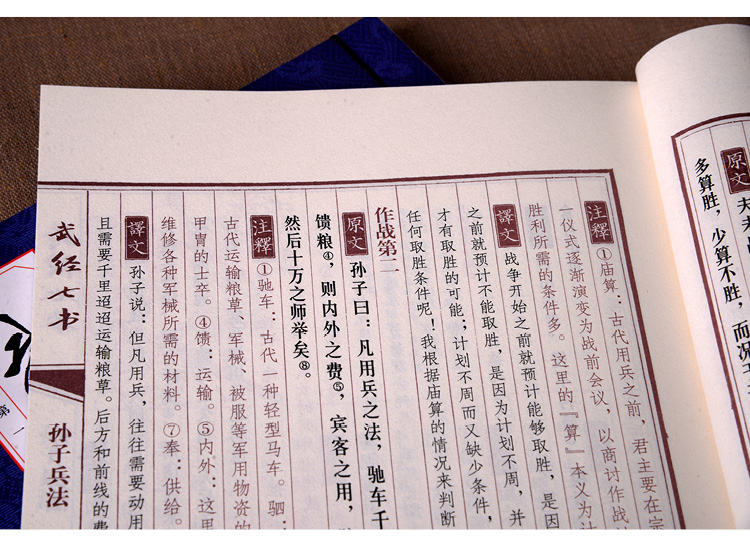 原文 夫
多算胜，少算不胜，而况
注釋 ①庙算：古代用兵之前，君主要在宗
一仪式逐渐演变为战前会议，以商讨作战
胜利所需的条件多。这里的『算』本义为计
譯文 战争开始之前就预计能够取胜，是因
之前就预计不能取胜，是因为计划不周，并
才有取胜的可能；计划不周而又缺少条件，
任何取胜条件呢！我根据庙算的情况来判断
作战第二
原文 孙子曰：凡用兵之法，驰车千
馈粮④，则内外之费⑤，宾客之用，
然后十万之师举矣⑧。
注釋 ①驰车：古代一种轻型马车。驷：
古代运输粮草、军械、被服等军用物资的
甲胄的士卒。④馈：运输。⑤内外：这里
维修各种军械所需的材料。⑦奉：供给。
譯文 孙子说：但凡用兵，往往需要动用
且需要千里迢迢运输粮草。后方和前线的费
武经七书
孙子兵法